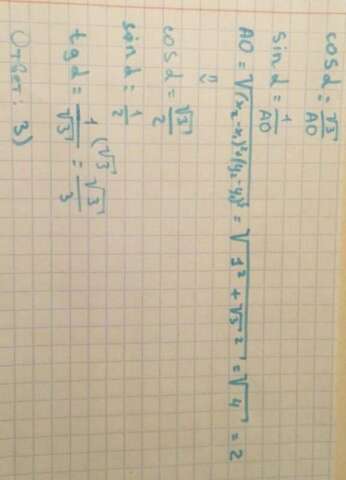 cos α = √3/AO
sin α = 1/AO
AO = √(x₂-x₁)²+(y₂-y₁)² = √1² + √3² = √4 = 2
⇓
cos α = √3/2
sin α = 1/2
tg α = 1/√3 (√3 = √3/3
Ответ: 3)